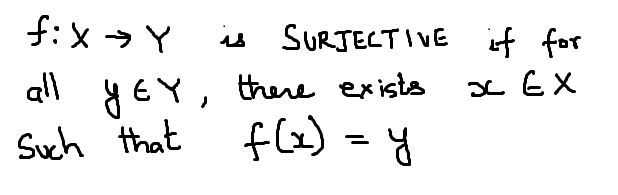 f: X → Y is SURJECTIVE if for
all y ∈ Y, there exists x ∈ X
Such that f(x) = y